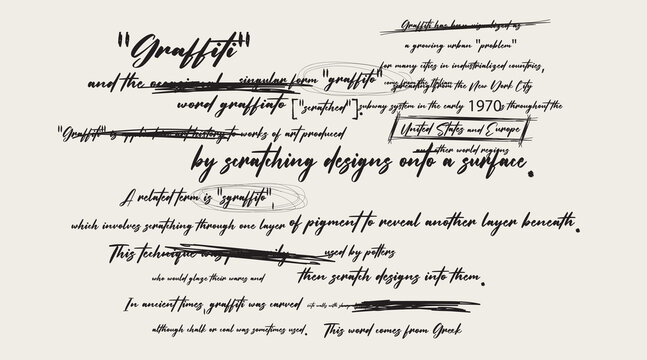 "Graffiti"
and the occasional singular form "graffito"
word graffiato ["scratched"].
"Graffiti" is applied in art history to works of art produced
by scratching designs onto a surface.
Graffiti has been visualized as
a growing urban "problem"
for many cities in industrialized countries,
spreading from the New York City
subway system in the early 1970s throughout the
United States and Europe
and other world regions
A related term is "sgraffito",
which involves scratching through one layer of pigment to reveal another layer beneath.
This technique was primarily used by potters
who would glaze their wares and then scratch designs into them.
In ancient times, graffiti was carved into walls with
although chalk or coal was sometimes used. This word comes from Greek